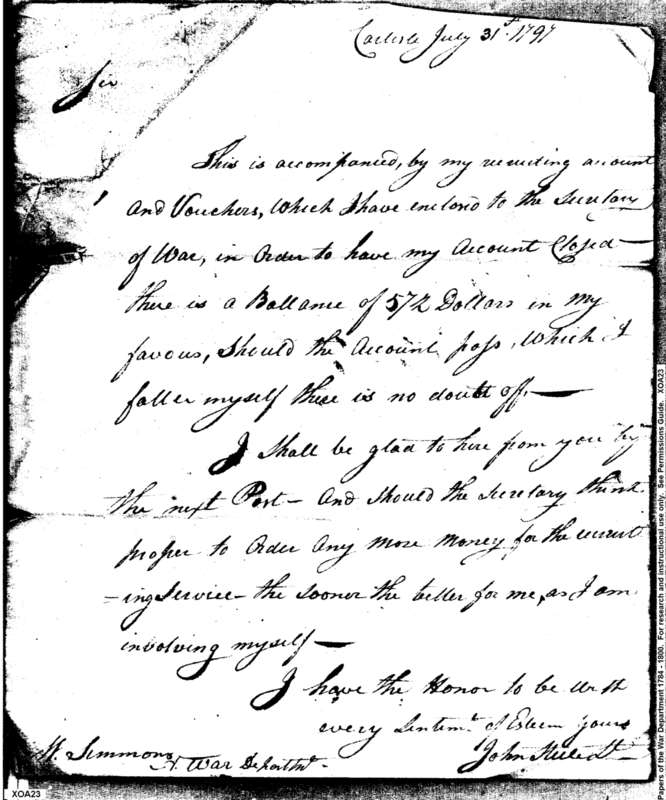 Carlisle July 31st 1797
Sir
This is accompanied, by my recruiting account
And Vouchers, Which I have enclosd to the Secretary
of War, in Order to have my Account Closed —
there is a Ballance of 572 Dollars in my
favour, Should the Account pass, Which I
flatter myself there is no doubt off. —
I Shall be glad to here from you by
the next Post — And Should the Secretary think
proper to Order Any More Money for the recruit
=ing Service — the Sooner the better for me, as I am
involving myself —
I have the Honor to be With
every Sentimt of Esteem yours
John
W. Simmons
A. War Departmt.
XOA23
Papers of the War Department 1784 - 1800. For research and instructional use only. See Permissions Guide. XOA23